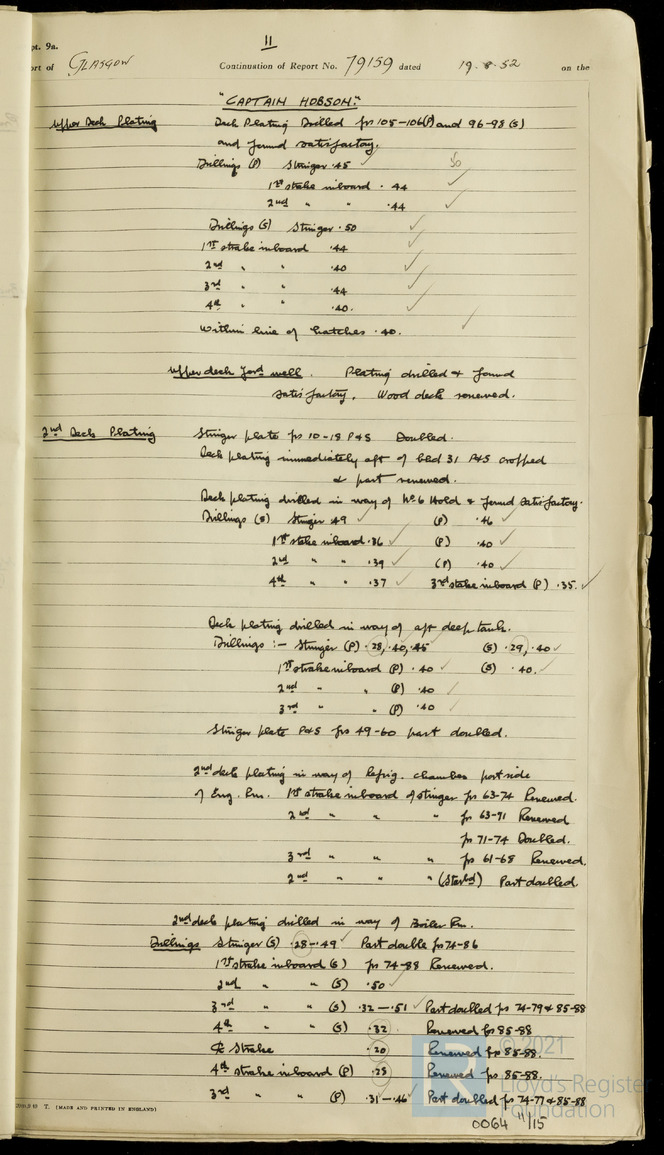 11
pt. 9a.
ort of GLASGOW Continuation of Report No. 79159 dated 19.8.52 on the
"CAPTAIN HOBSON."
Upper Deck Plating Deck Plating Drilled frs 105-106(P) and 96-98 (S)
and found satisfactory.
Drillings (P) Stringer .45 ✓ 50
1st strake inboard .44 ✓
2nd " " .44 ✓
Drillings (S) Stringer .50 ✓
1st strake inboard .44 ✓
2nd " " .40 ✓
3rd " " .44 ✓
4th " " .40. ✓
Within line of hatches .40. ✓
Upper deck ford well. Plating drilled & found
satisfactory. Wood deck renewed.
2nd Deck Plating Stringer plate frs 10-18 P&S Doubled.
Deck plating immediately aft of bhd 31 P&S cropped
& part renewed.
Deck plating drilled in way of No.6 Hold & found satisfactory.
Drillings (S) Stringer .49 ✓ (P) .46 ✓
1st strake inboard .36 ✓ (P) .40 ✓
2nd " " .39 ✓ (P) .40 ✓
4th " " .37 ✓ 3rd strake inboard (P) .35. ✓
Deck plating drilled in way of aft deep tank.
Drillings :- Stringer (P) .28, .40, .45 (S) .29, .40 ✓
1st strake inboard (P) .40 ✓ (S) .40. ✓
2nd " " (P) .40 ✓
3rd " " (P) .40 ✓
Stringer plate P&S frs 49-60 part doubled.
2nd deck plating in way of Refrig. chambers port side
of Eng. Rm. 1st strake inboard of stringer frs 63-74 Renewed.
2nd " " " frs 63-71 Renewed
frs 71-74 Doubled.
3rd " " " frs 61-68 Renewed.
2nd " " " (Starbd) Part doubled.
2nd deck plating drilled in way of Boiler Rm.
Drillings Stringer (S) .28-.49 ✓ Part double frs 74-86
1st strake inboard (S) frs 74-88 Renewed.
2nd " " (S) .50 ✓
3rd " " (S) .32-.51 ✓ Part doubled frs 74-79 & 85-88
4th " " (S) .32. Renewed frs 85-88
℄ Strake .20 Renewed frs 85-88.
4th strake inboard (P) .28 Renewed frs 85-88.
3rd " " (P) .31-.46 ✓ Part doubled frs 74-77 & 85-88
T. (MADE AND PRINTED IN ENGLAND)
© 2021
Lloyd's Register
Foundation
0064 11/15